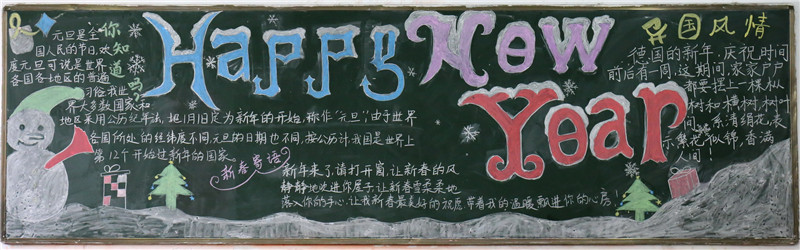 Happy New
Year
你知道吗?
元旦是全
国人民的节日,欢
度元旦可说是世界
各国各地区的普遍
习俗,我世
界大多数国家和
地区采用公历纪年法,把1月1日定为新年的开始,称作“元旦”,由于世界
各国所处的经纬度不同,元旦的日期也不同,按公历计,我国是世界上
第12个开始过新年的国家。
新春寄语
新年来了,请打开窗,让新春的风
静静地吹进你屋子,让新春雪柔柔地
落入你的手心,让我新春最美好的祝愿,带着我的温暖飘进你的心房!
异国风情
德国的新年,庆祝时间
前后有一周,这期间,家家户户
都要摆上一棵枞
树和横树,树叶
间系满绢花,表
示繁花似锦,香满
人间!